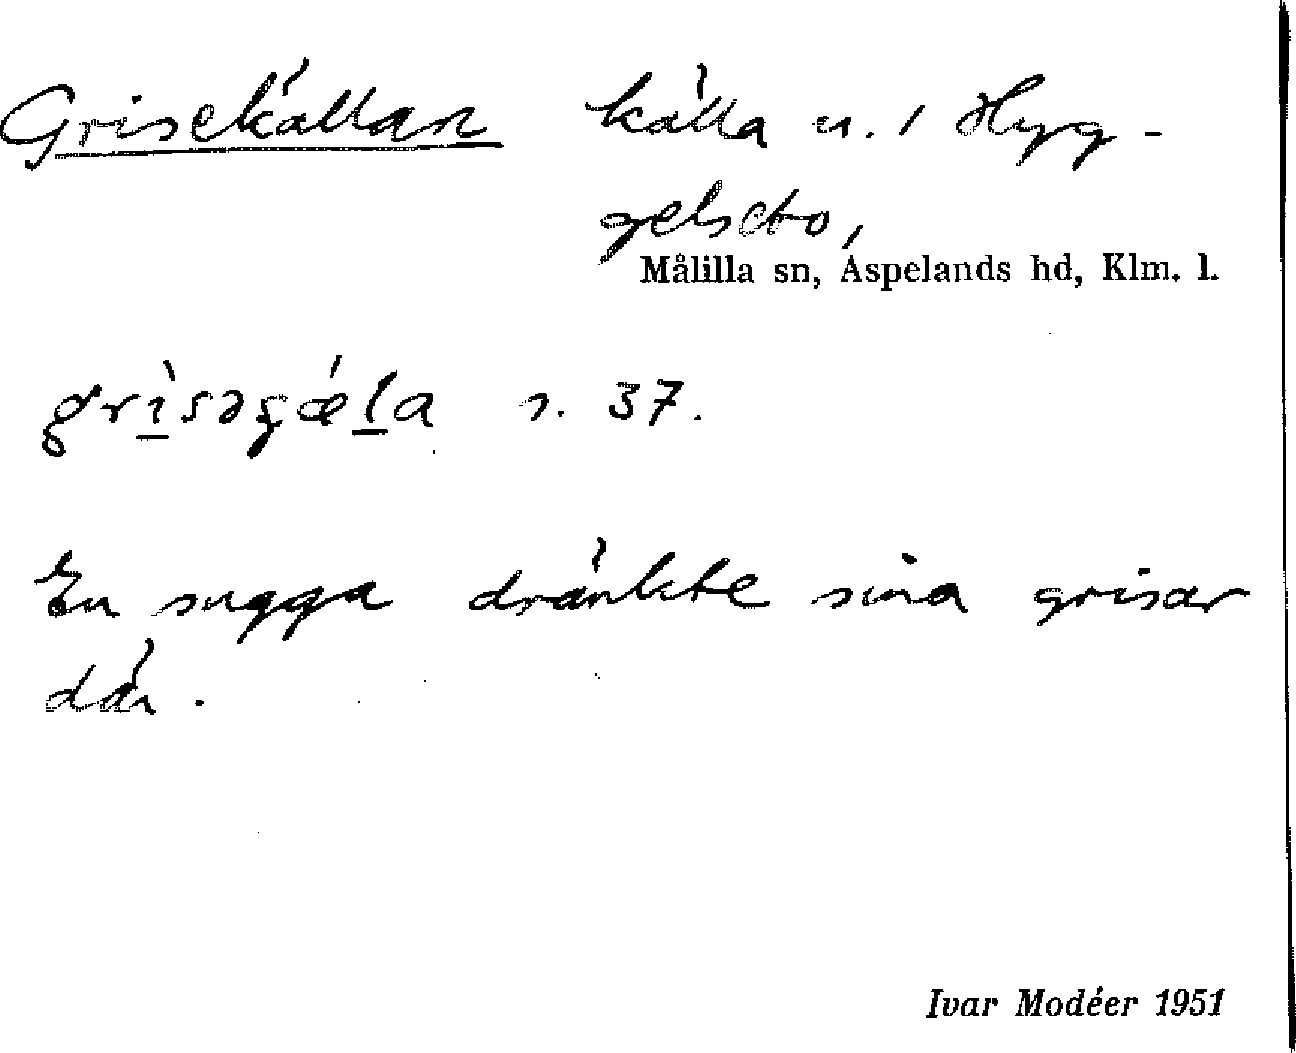 Grisekällan källa n. 1 Hyg-
gelsebo,
Målilla sn, Aspelands hd, Klm. l.
s. 37.
En sugga dränkte sina grisar
där.
Ivar Modéer 1951